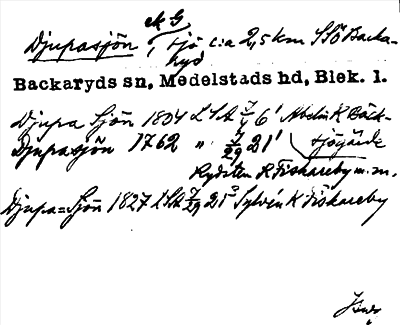 ek G
Djupasjön, sjö c:a 2,5 km SSÖ Backa-
ryd
Backaryds sn, Medelstads hd, Blek. l.
Djupa Sjön 1804 LSA 7/4 6' Abelin K Bäck-
Djupasjön 1762 " 7/29 21' sjögärde
Rydsten K Fiskareby m.m.
Djupa=Sjön 1827 LSA 7/29 21³ Sylvén K Fiskareby